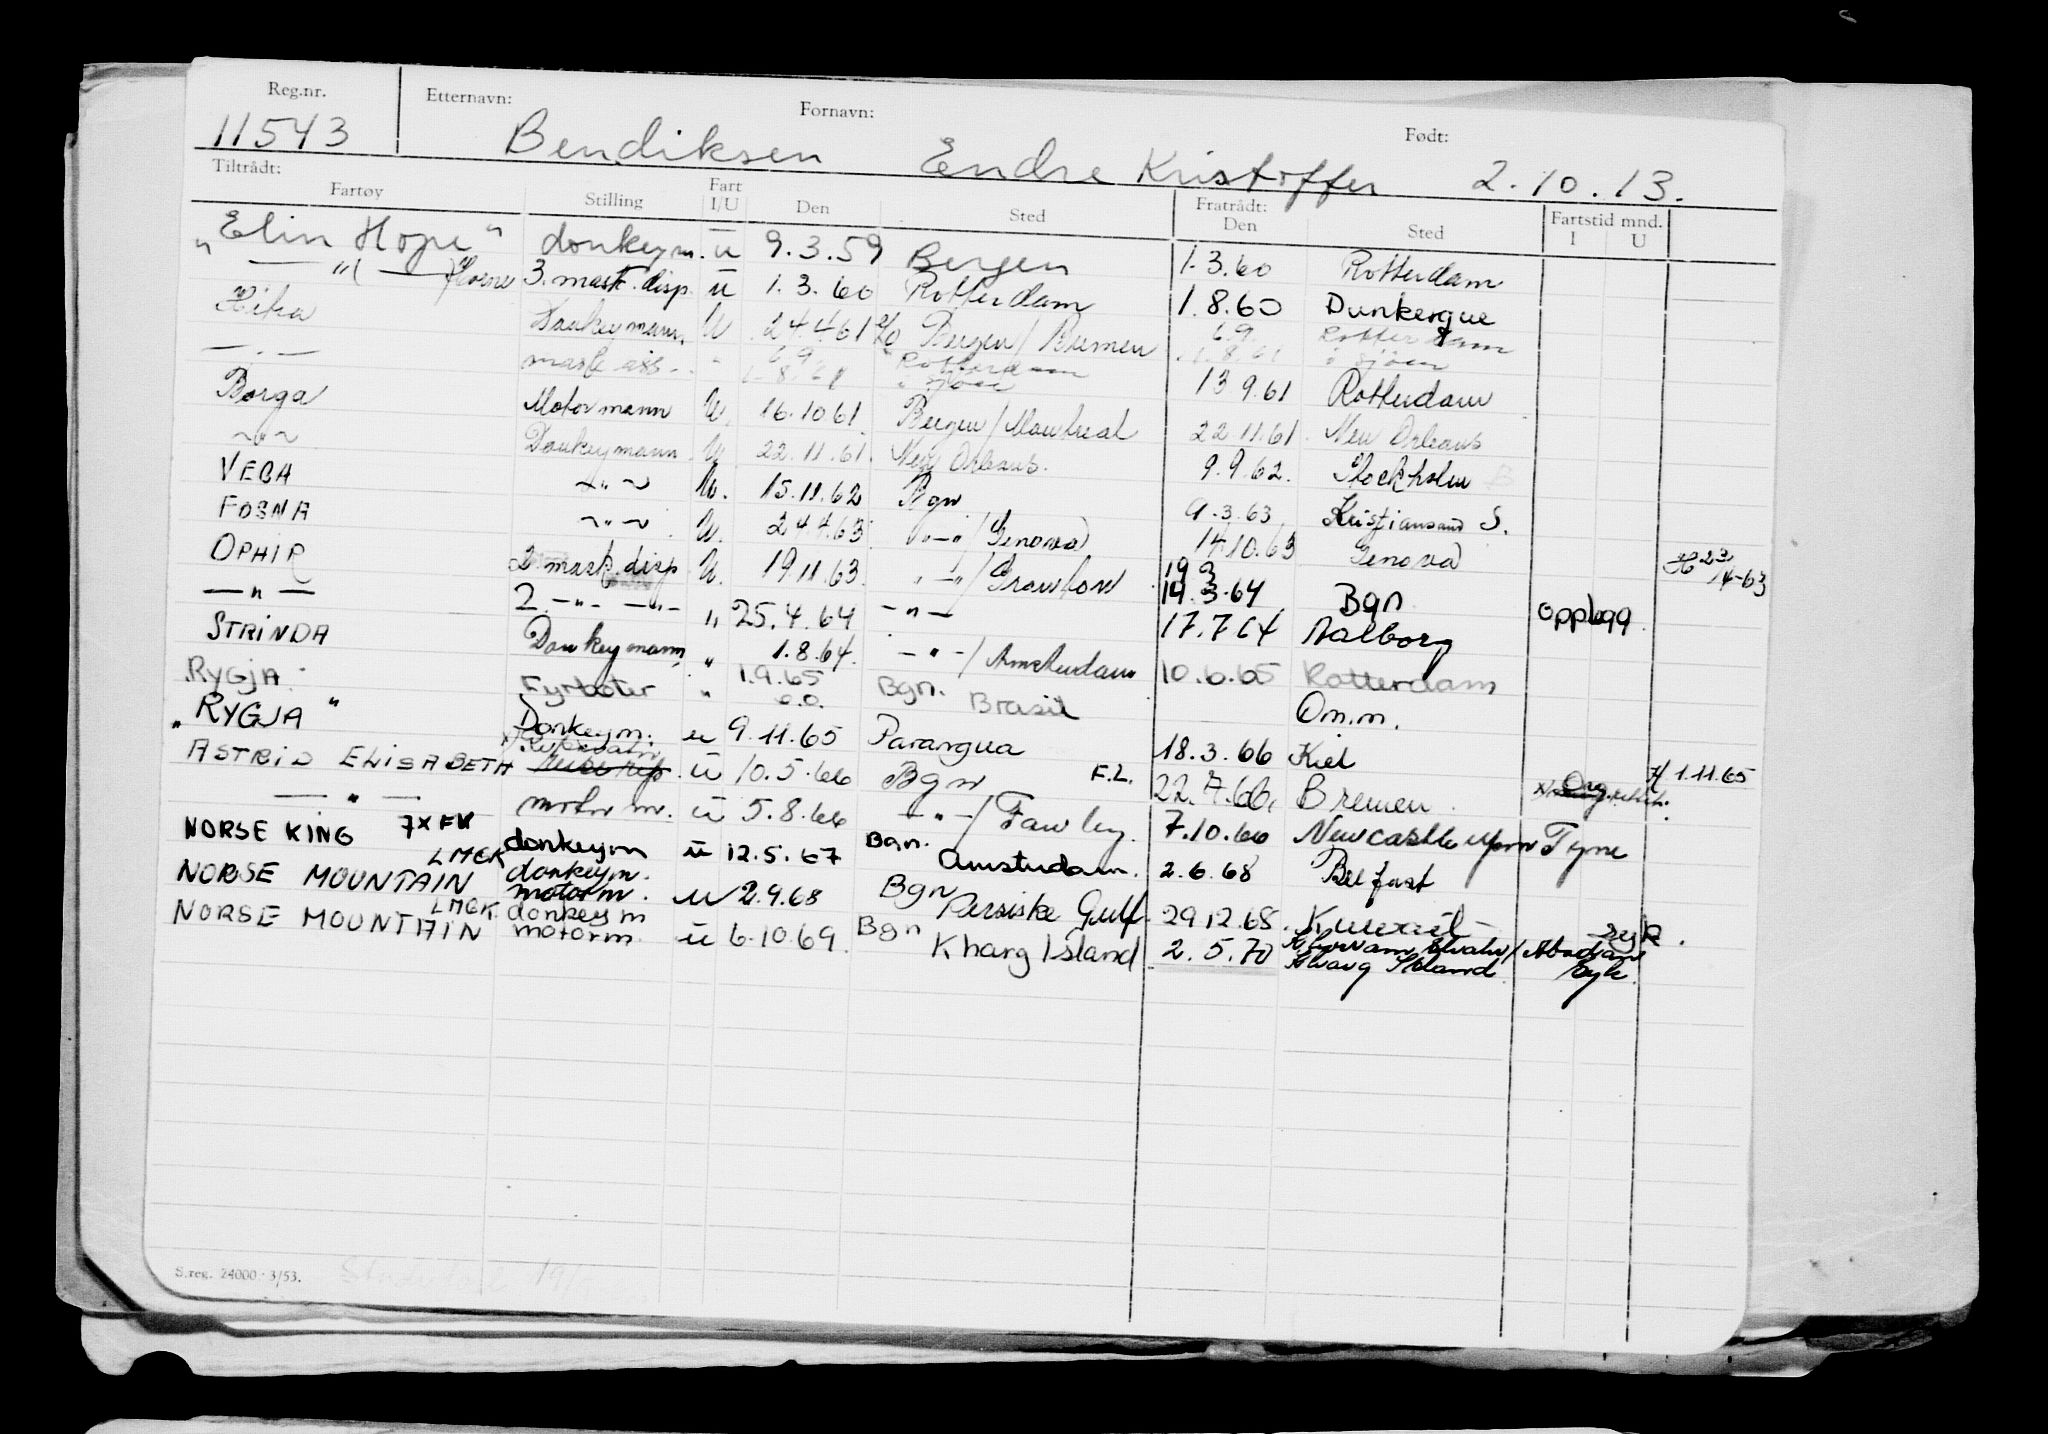 Reg.nr. Etternavn: Fornavn: Født:
11543 Bendiksen Endre Kristoffer 2.10.13.
Tiltrådt: Fratrådt: Fartstid mnd.
Fartøy Stilling Fart I/U Den Sted Den Sted I U
"Elin Hope" donkeym. u 9.3.59 Bergen 1.3.60 Rotterdam
— " ( — ) 3. mask. disp. u 1.3.60 Rotterdam 1.8.60 Dunkerque
Hitra Donkeymann U 24.4.61 Bergen/Bremen 6.9. Rotterdam
— " — mask. ass. " 6.9. Rotterdam 13.9.61 Rotterdam
Borga Motormann U. 16.10.61 Bergen/Montreal 22.11.61. New Orleans
~"~ Donkeymann U. 22.11.61. New Orleans. 9.9.62. Stockholm
VEGA ~"~ U. 15.11.62 Bgn 9.3.63 Kristiansand S.
FOSNA ~"~ U. 24.4.63. "-"/Genova 14.10.63 Genova H 23/4-63
OPHIR 2 mask. disp U. 19.11.63. "-"/ 19.3.64 Bgn opplagg.
— " — 2. -"- -"- " 25.4.64 -"- 17.7.64 Aalborg
STRINDA Donkeymann " 1.8.64. -"-/Amsterdam 10.6.65 Rotterdam
RYGJA Fyrbøter " 1.9.65 Bgn. Brasil Om.m.
"RYGJA" Donkeym. u 9.11.65 Parangua 18.3.66 Kiel H 1.11.65
ASTRID ELISABETH u 10.5.66 Bgn F.L. 22.7.66. Bremen Org.
— " — motorm. u 5.8.66 -"-/Fawley. 7.10.66 Newcastle upon Tyne
NORSE KING 7XFK donkeym u 12.5.67 Bgn. Amsterdam. 2.6.68 Belfast
NORSE MOUNTAIN LMCK donkeym. motorm. u 2.9.68 Bgn Persiske Gulf. 29.12.68. Kuwait - syk.
NORSE MOUNTAIN LMCK donkeym motorm. u 6.10.69. Bgn Kharg Island 2.5.70 Kharg Island /Abadan syk.
S.reg. 24000 · 3/53.